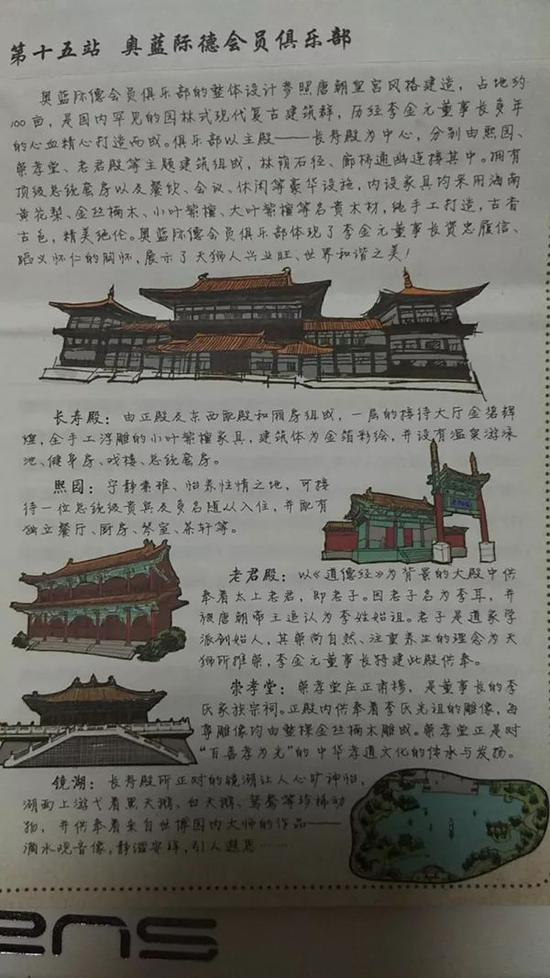 第十五站 奥蓝际德会员俱乐部
奥蓝际德会员俱乐部的整体设计参照唐朝皇宫风格建造，占地约
100亩，是国内罕见的园林式现代复古建筑群，历经李金元董事长多年
的心血精心打造而成。俱乐部以主殿——长寿殿为中心，分别由熙园、
崇孝堂、老君殿等主题建筑组成，林荫石径、廊桥通幽连接其中。拥有
顶级总统套房以及餐饮、会议、休闲等豪华设施，内设家具均采用海南
黄花梨、金丝楠木、小叶紫檀、大叶紫檀等名贵木材，纯手工打造，古香
古色，精美绝伦。奥蓝际德会员俱乐部体现了李金元董事长贯忠履信、
蹈义怀仁的胸怀，展示了天狮人兴业旺、世界和谐之美！
长寿殿：由正殿及东西配殿和厢房组成，一层的接待大厅金碧辉
煌，全手工浮雕的小叶紫檀家具，建筑体为金箔彩绘，并设有温泉游泳
池、健身房、戏楼、总统套房。
熙园：宁静素雅、怡养性情之地，可接
待一位总统级贵宾及多名随从入住，并配有
独立餐厅、厨房、琴室、茶轩等。
老君殿：以《道德经》为背景的大殿中供
奉着太上老君，即老子。因老子名为李耳，并
被唐朝帝王追认为李姓始祖。老子是道家学
派创始人，其崇尚自然、注重养生的理念为天
狮所推崇，李金元董事长特建此殿供奉。
崇孝堂：崇孝堂庄正肃穆，是董事长的李
氏家族宗祠。正殿内供奉着李氏先祖的雕像，每
尊雕像均由整棵金丝楠木雕成。崇孝堂正是对
“百善孝为先”的中华孝道文化的传承与发扬。
镜湖：长寿殿所正对的镜湖让人心旷神怡，
湖面上游弋着黑天鹅、白天鹅、鸳鸯等珍稀动
物，并供奉着来自世博园内大师的作品——
滴水观音像，静谧安祥，引人遐思……